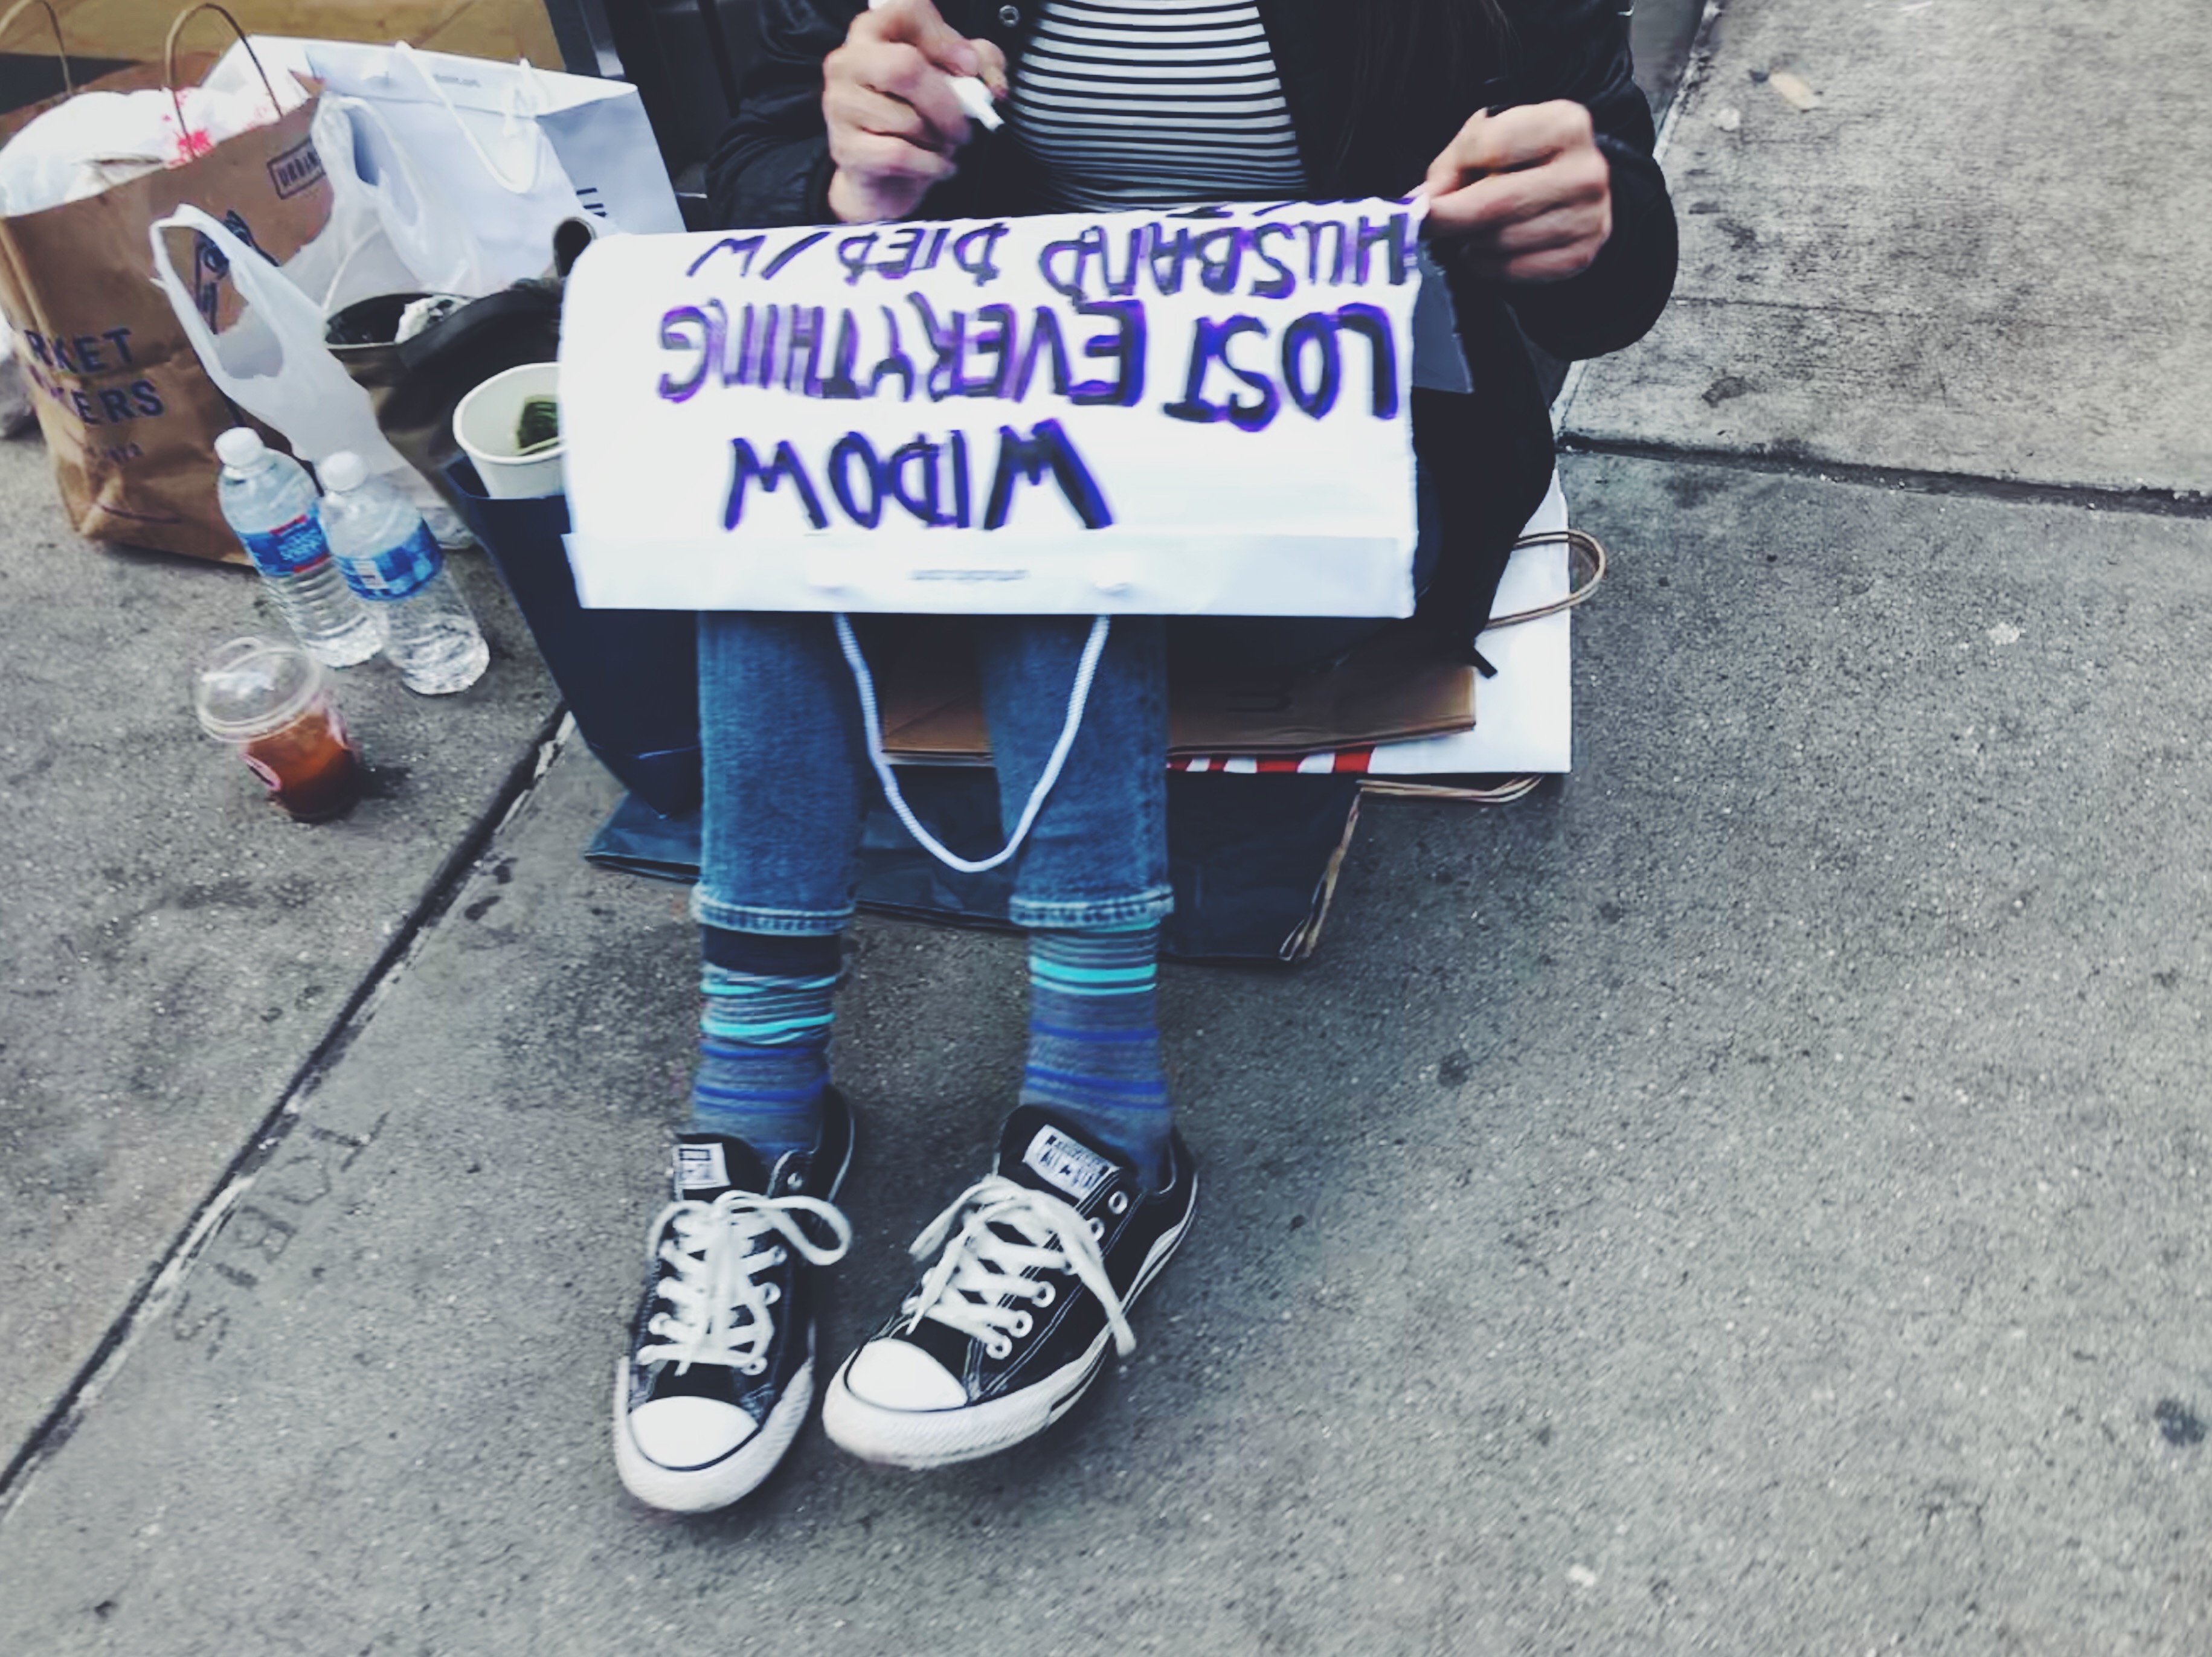 WIDOW
LOST EVERYTHING
HUSBAND DIED / W
URBAN
RKET
ERS